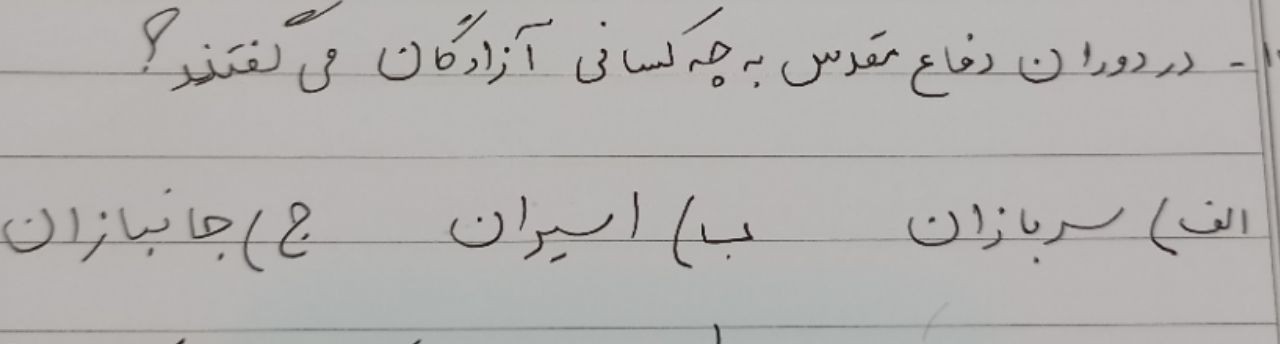 ۱- در دوران دفاع مقدس به چه کسانی آزادگان می گفتند؟
الف) سربازان ب) اسیران ج) جانبازان